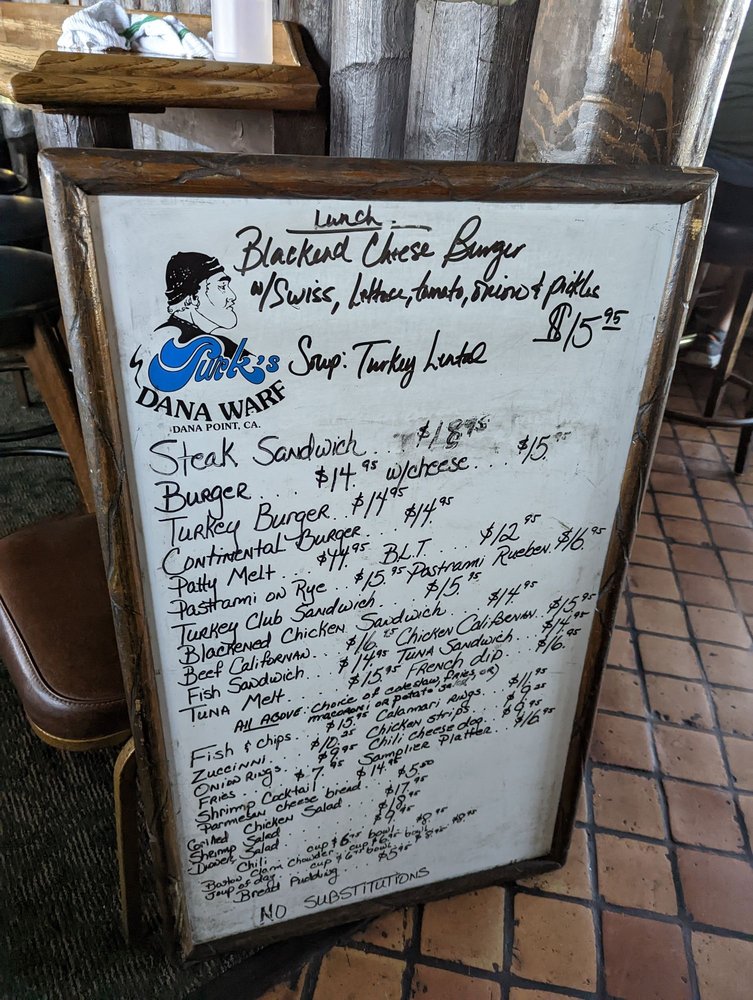 Lunch
Blackend Cheese Burger
w/Swiss, Lettuce, tomato, onion & pickles
$15.95
Turk's
DANA WARF
DANA POINT, CA.
Soup: Turkey Lental
Steak Sandwich... $18.95
Burger.... $14.95 w/cheese... $15.
Turkey Burger. $14.95
Continental Burger... $14.95
Patty Melt... $44.95 B.L.T.... $12.95
Pastrami on Rye.. $15.95 Pastrami Rueben. $16.95
Turkey Club Sandwich... $15.95
Blackened Chicken Sandwich.... $14.95
Beef Californan.. $16. Chicken Californan. $15.95
Fish Sandwich... $14.95 Tuna Sandwich.... $14.95
Tuna Melt.... $15.95 French dip... $16.95
All Above: Choice of coleslaw, fries, or
macaroni or potato
Fish & chips.... $15.95 Calamari Rings. $11.95
Zuccinni... $10.25 Chicken strips.. $9.25
Onion Rings.. $9.95 Chili cheese dog.. $9.95
Fries... $7.95 Samplier Platter. $16.95
Shrimp Cocktail. $14.95
Parmesan cheese bread $5.50
Grilled Chicken Salad $17.95
Shrimp Salad $18.95
Dinner Salad $9.
Chili cup $6.95 bowl $8.95
Boston Clam Chowder cup $6.95 bowl $8.95
Soup of day cup $6.95 bowl $8.95
Bread Pudding.. $5.95
NO SUBSTITUTIONS